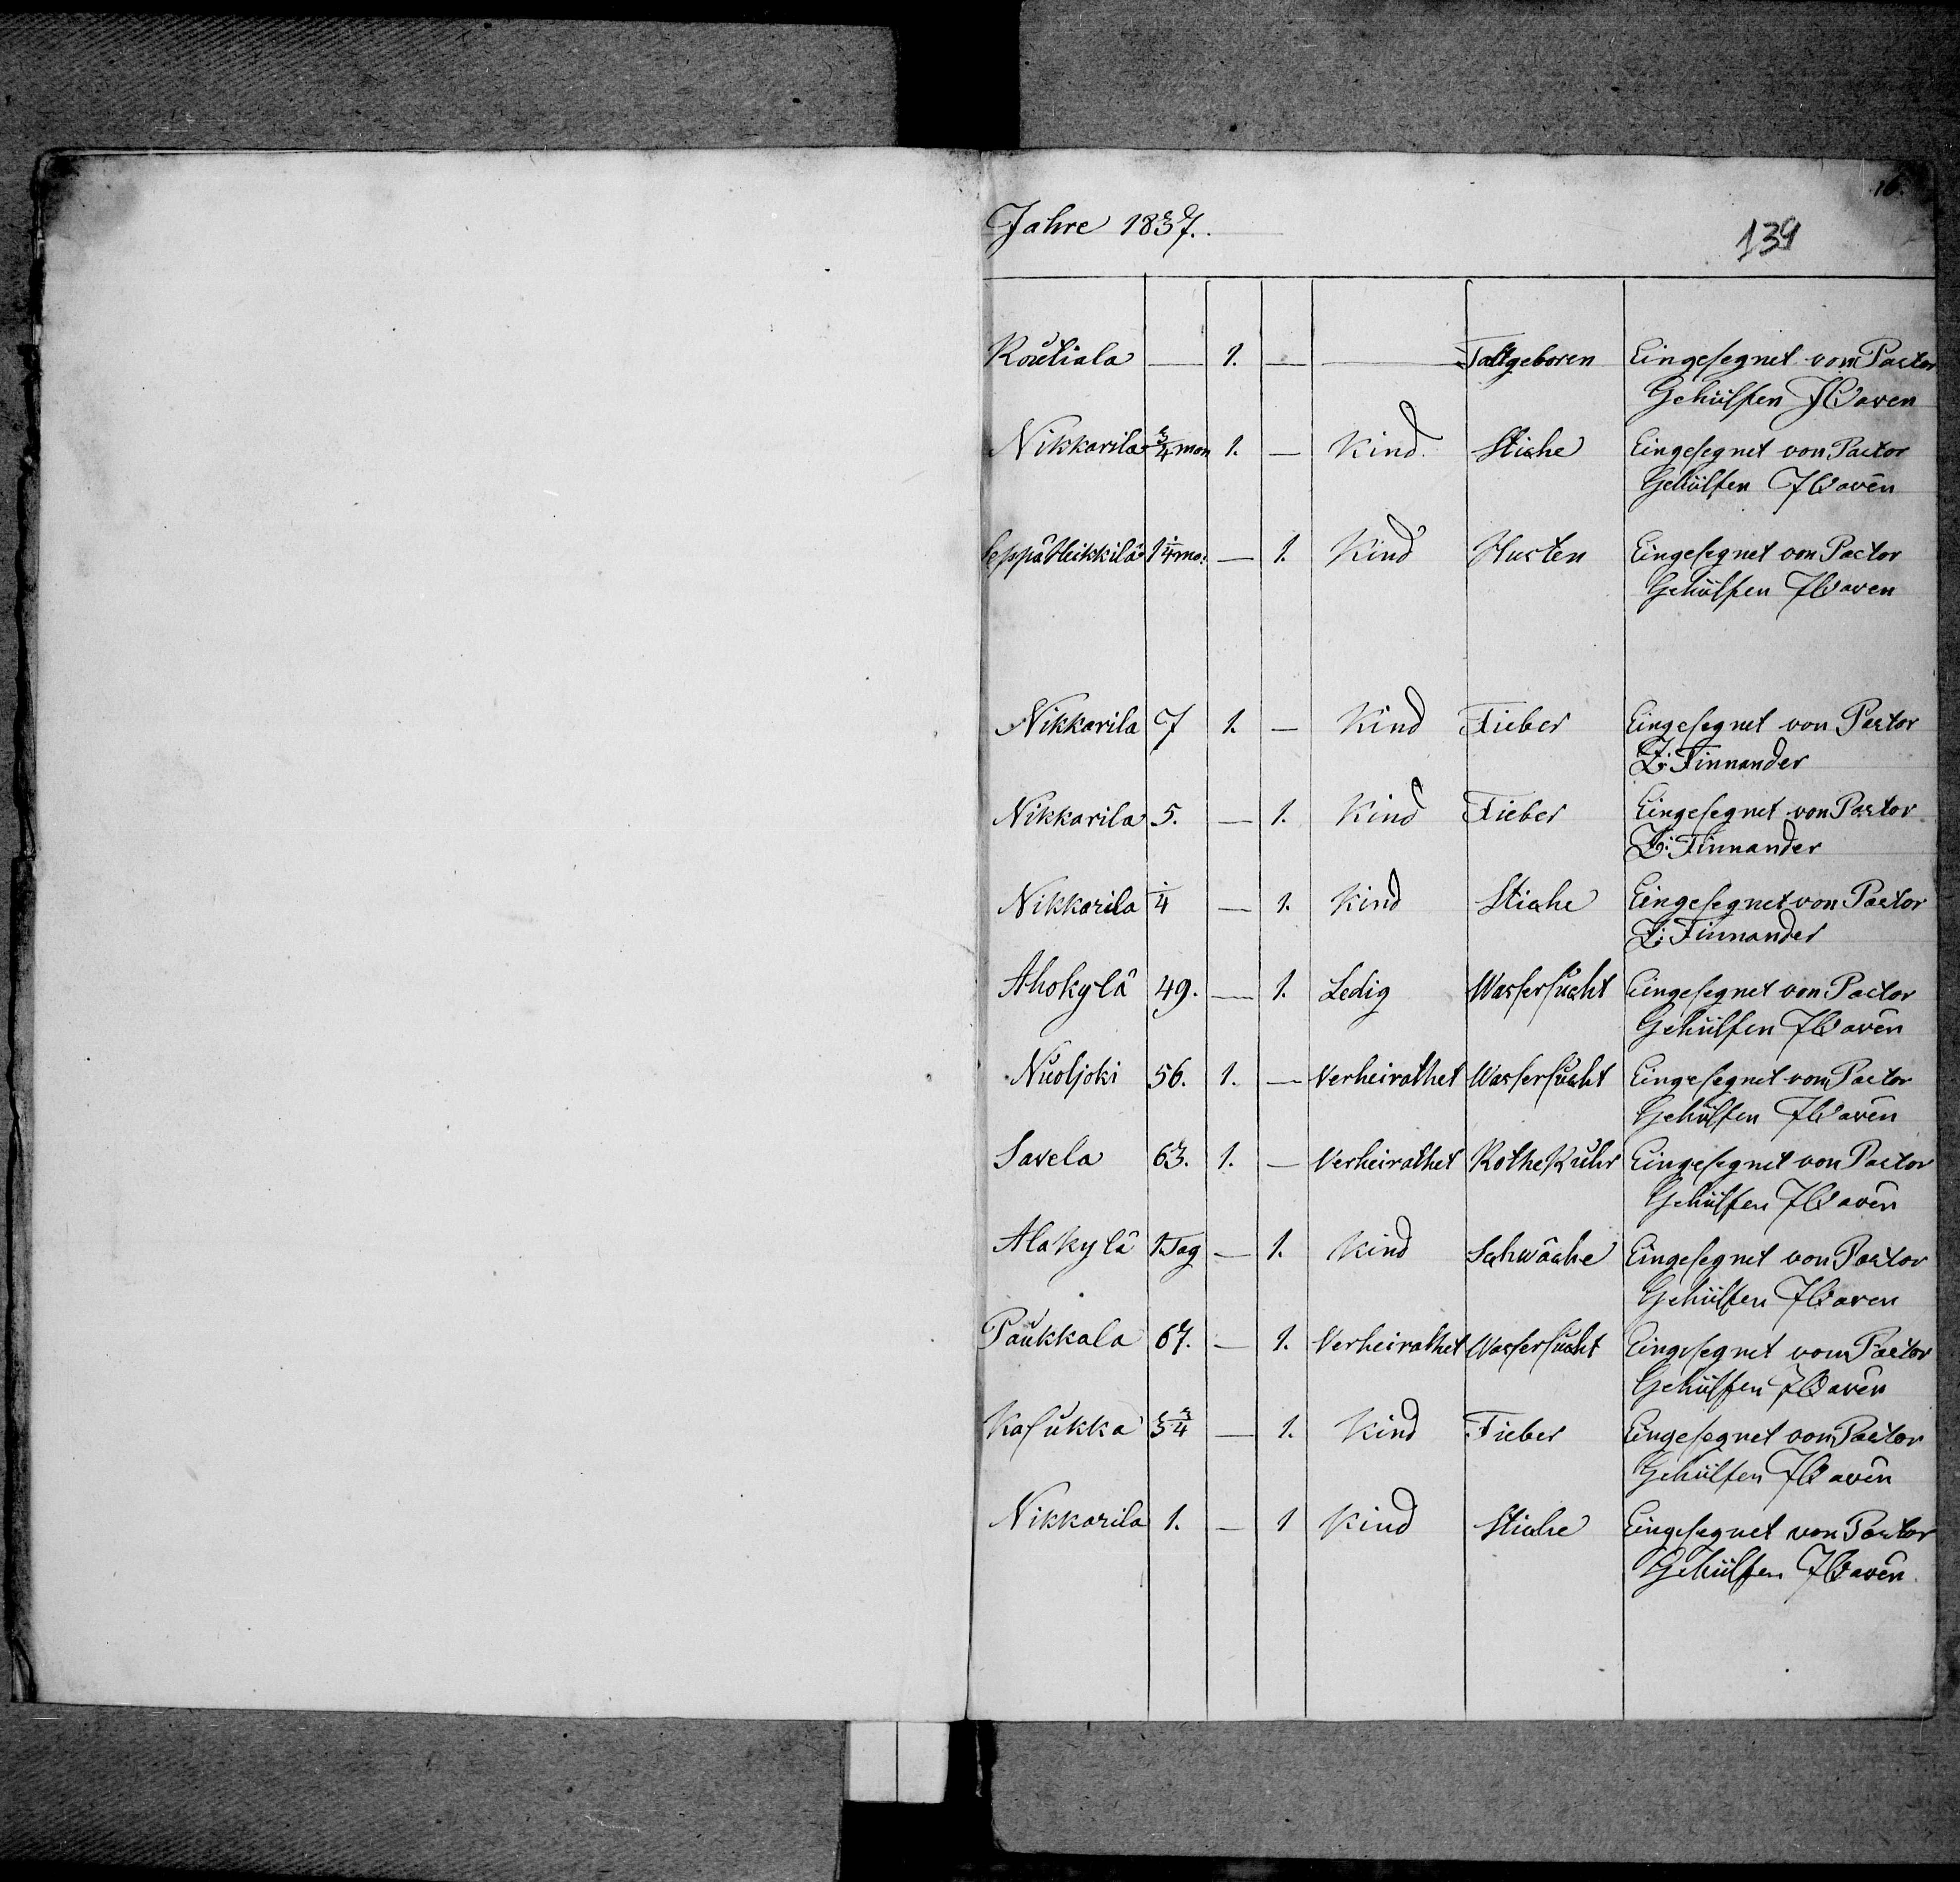 16.
Jahre 1837.
139
Routiala — 1. — — Todtgeboren Eingesegnet vom Pastor
Gehülfen
Nikkarila 3/4 mon 1. — Kind. Stiche Eingesegnet von Pastor
Gehülfen
Seppä Heikkilä 1 1/4 mo: — 1. Kind Husten Eingesegnet von Pastor
Gehülfen
Nikkarila 7 1. — Kind Fieber Eingesegnet von Pastor
Z: Finnander
Nikkarila 5. — 1. Kind Fieber Eingesegnet von Pastor
Z: Finnander
Nikkarila 1/4 — 1. Kind Stiche Eingesegnet von Pastor
Z: Finnander
Ahokylä 49. — 1. Ledig Wassersucht Eingesegnet von Pastor
Gehülfen
Nuoljoki 56. 1. — Verheirathet Wassersucht Eingesegnet vom Pastor
Gehülfen
Savela 63. 1. — Verheirathet Rothe Ruhr Eingesegnet von Pastor
Gehülfen
Alakylä 1. Tag — 1. Kind Schwäche Eingesegnet von Pastor
Gehülfen
Paukkala 67. — 1. Verheirathet Wassersucht Eingesegnet vom Pastor
Gehülfen
Kasukka 3 3/4 — 1. Kind Fieber Eingesegnet vom Pastor
Gehülfen
Nikkarila 1. — 1 Kind Stiche Eingesegnet von Pastor
Gehülfen